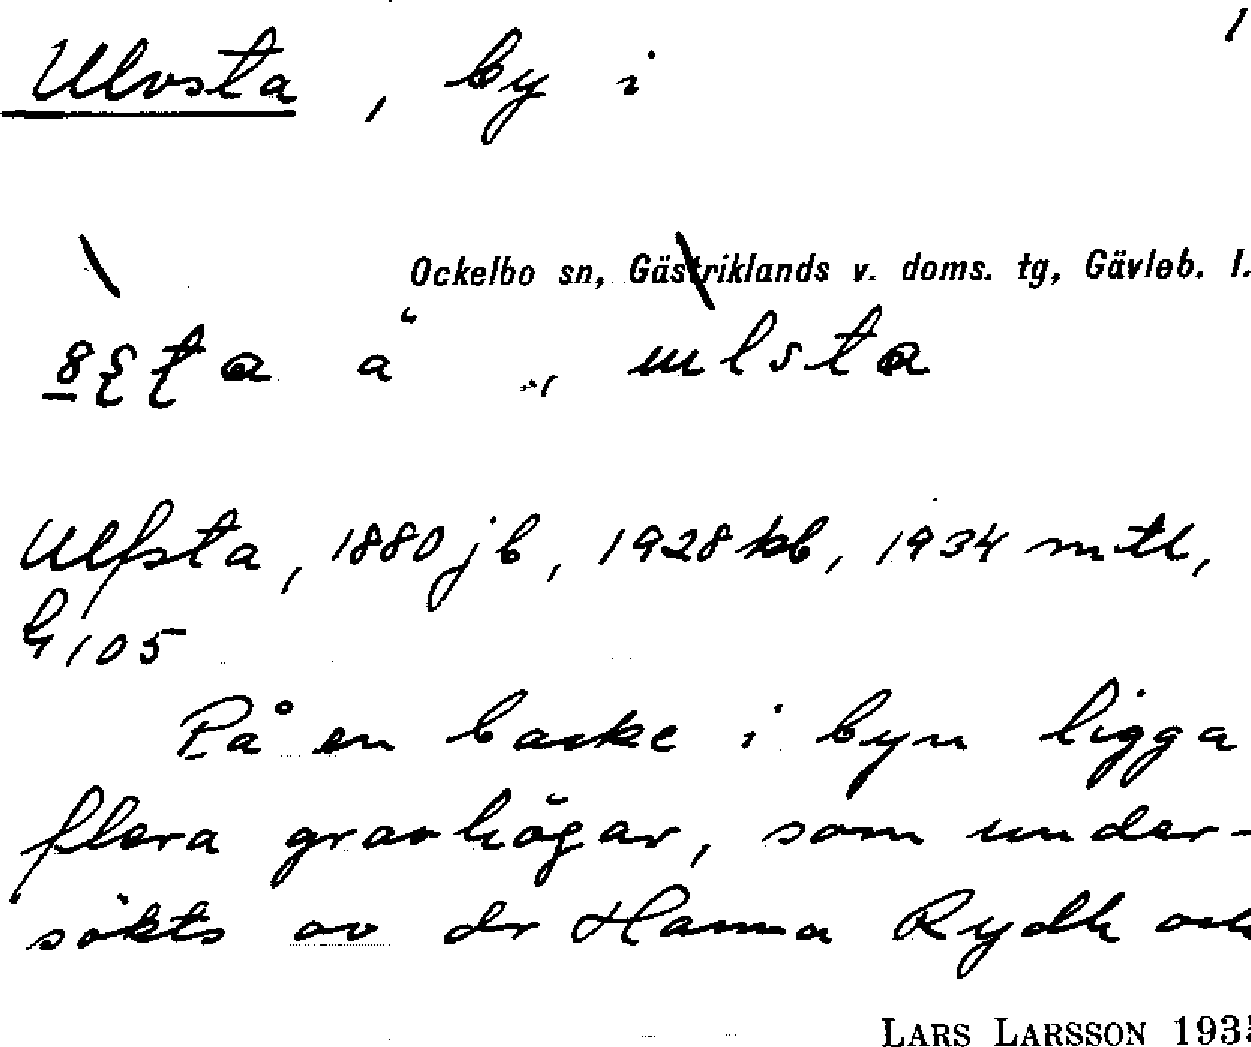 1
Ulvsta, by i
Ockelbo sn, Gästriklands v. doms. tg, Gävleb. l.
ulsta
Ulfsta, 1880 jb, 1928 kb, 1934 mtl,
G 105
På en backe i byn ligga
flera gravhögar, som under-
sökts av dr Hanna Rydh och
LARS LARSSON 193